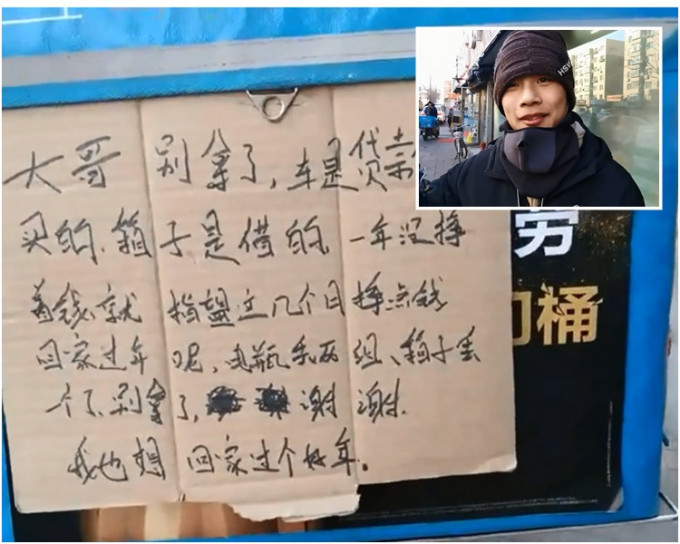 大哥 别拿了,车是贷款
买的、箱子是借的 一年没挣
着钱、就指望这几个月挣点钱
回家过年呢,电瓶丢两组、箱子丢
个了、别拿了, 谢谢.
我也想回家过个好年。
劳
桶